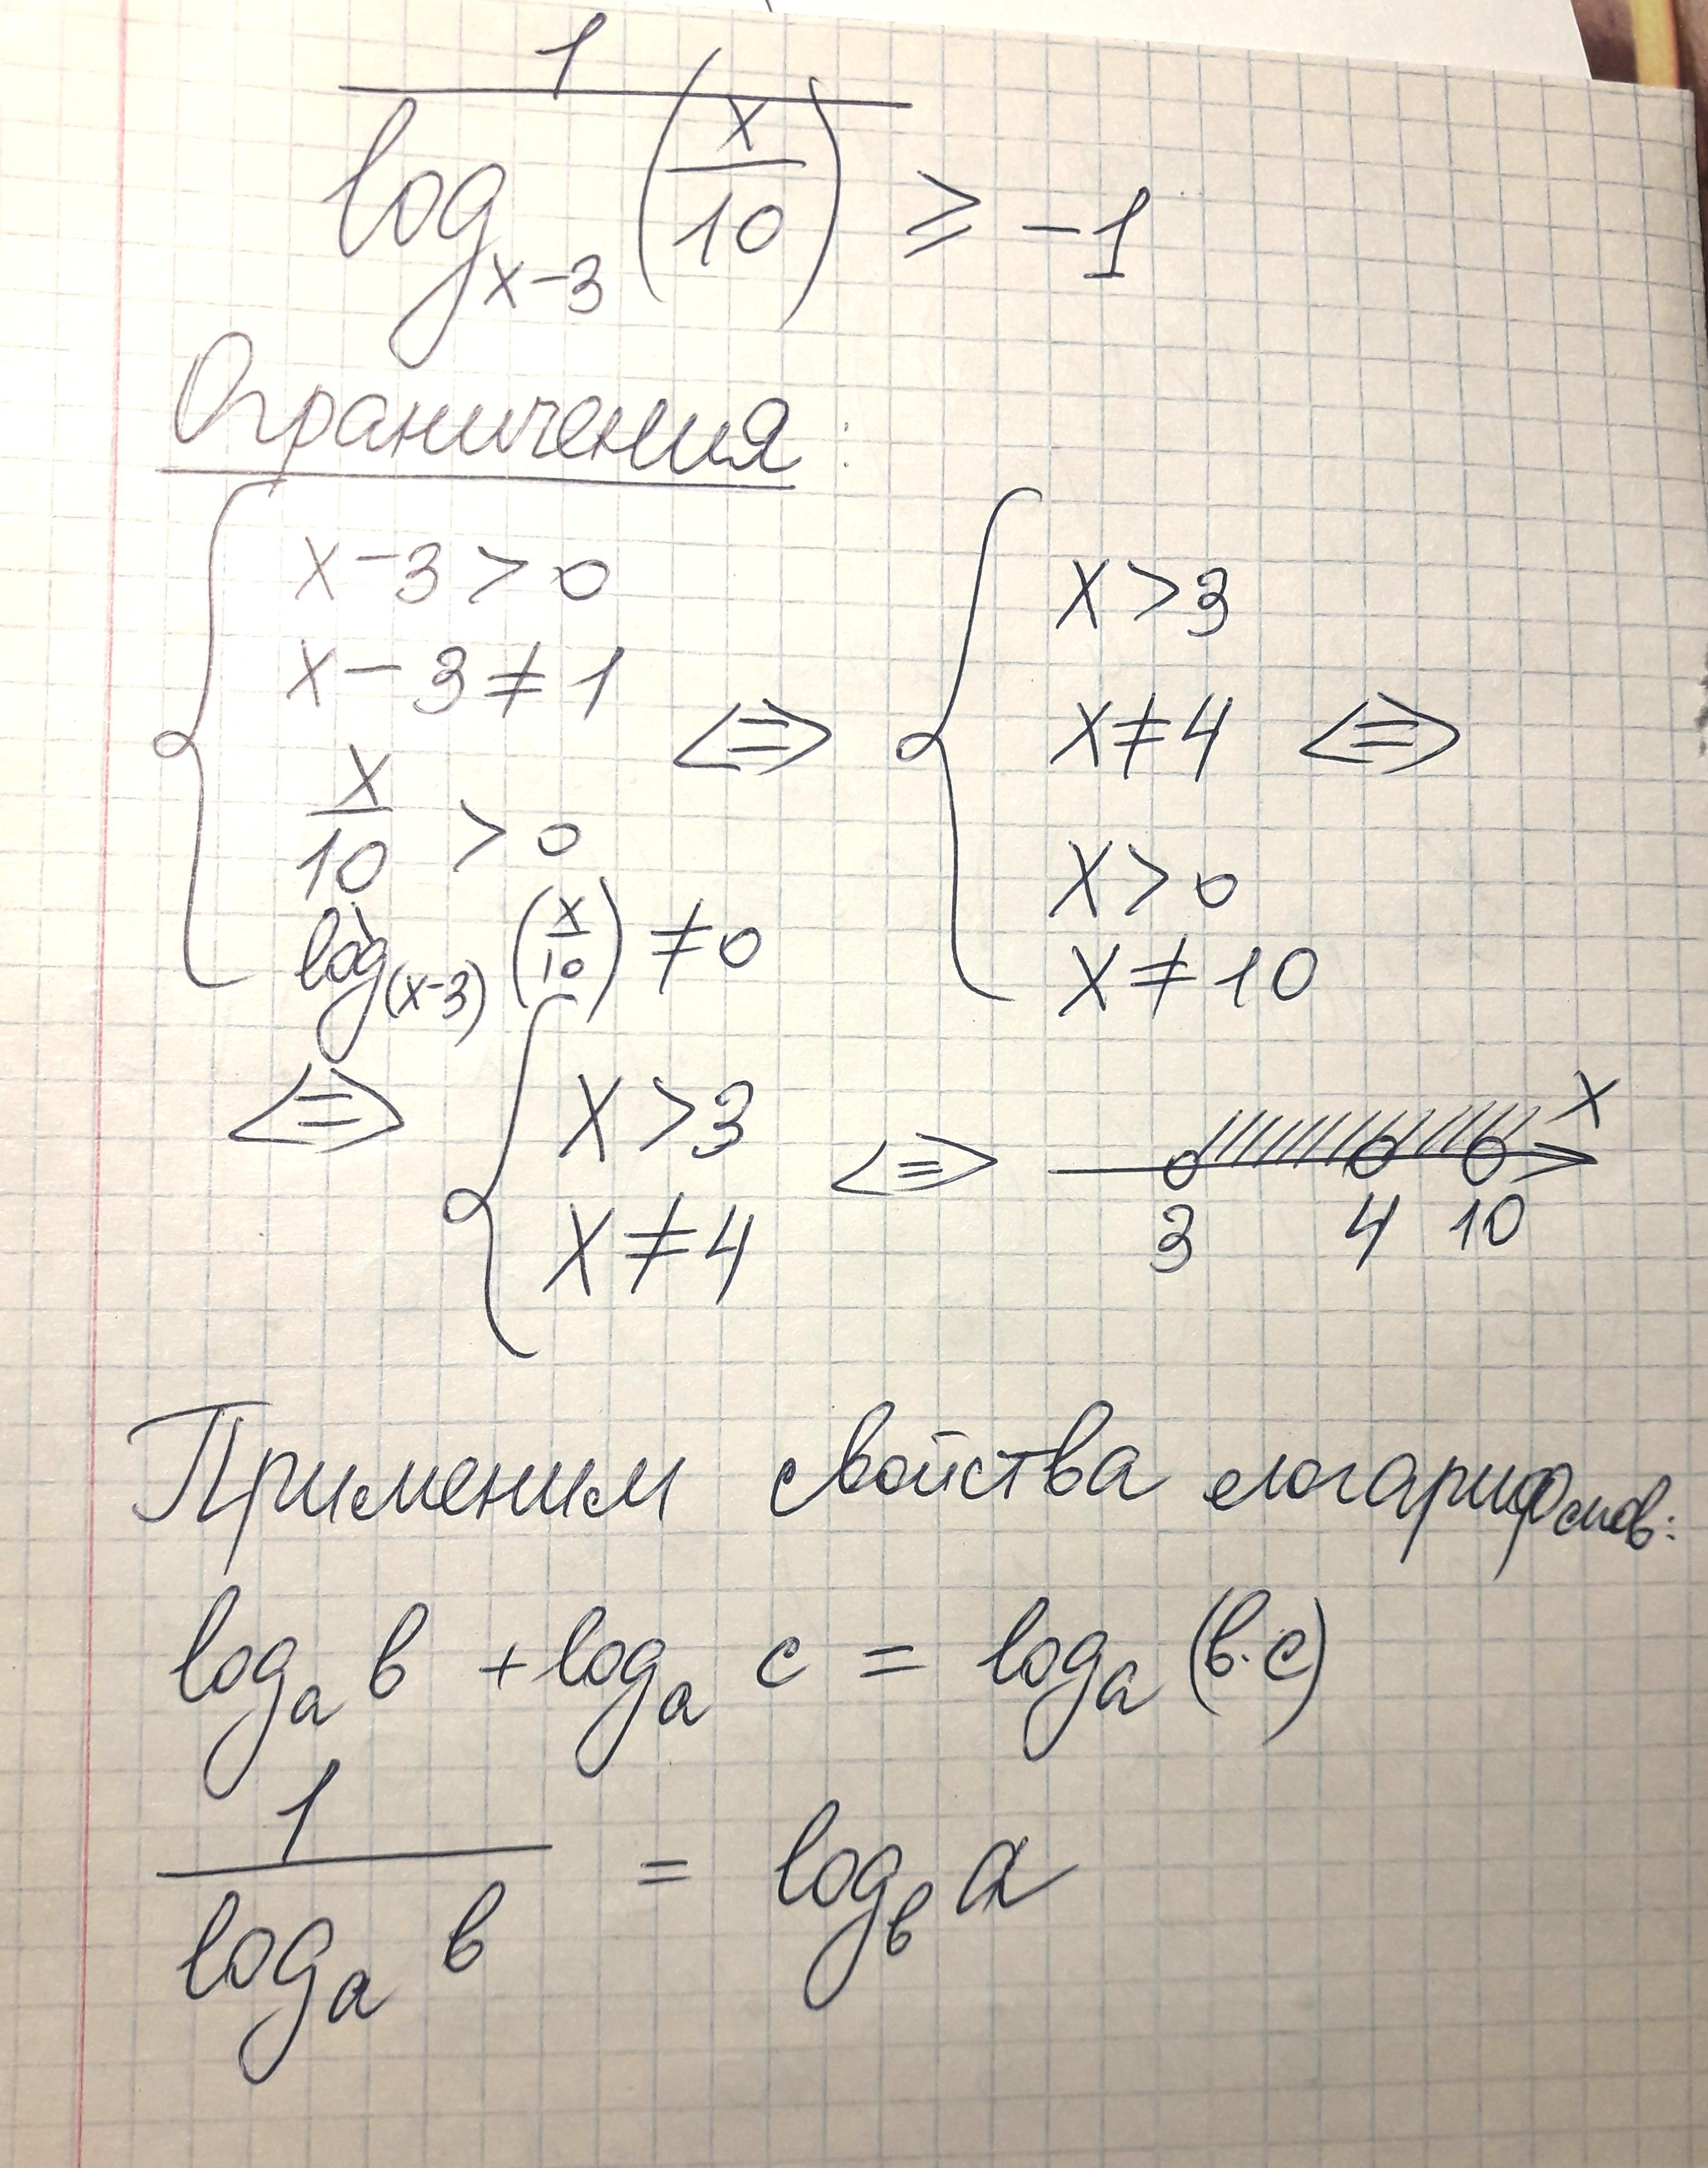 1
log_{x-3} (x/10) ⩾ -1
Ограничения:
x-3>0
x-3≠1
x/10 > 0
log_{(x-3)} (x/10) ≠0
<=>
x>3
x≠4
x>0
x≠10
<=>
<=>
x>3
x≠4
<=>
x
3 4 10
Применим свойства логарифмов:
log_a b + log_a c = log_a (b·c)
1/log_a b = log_b a